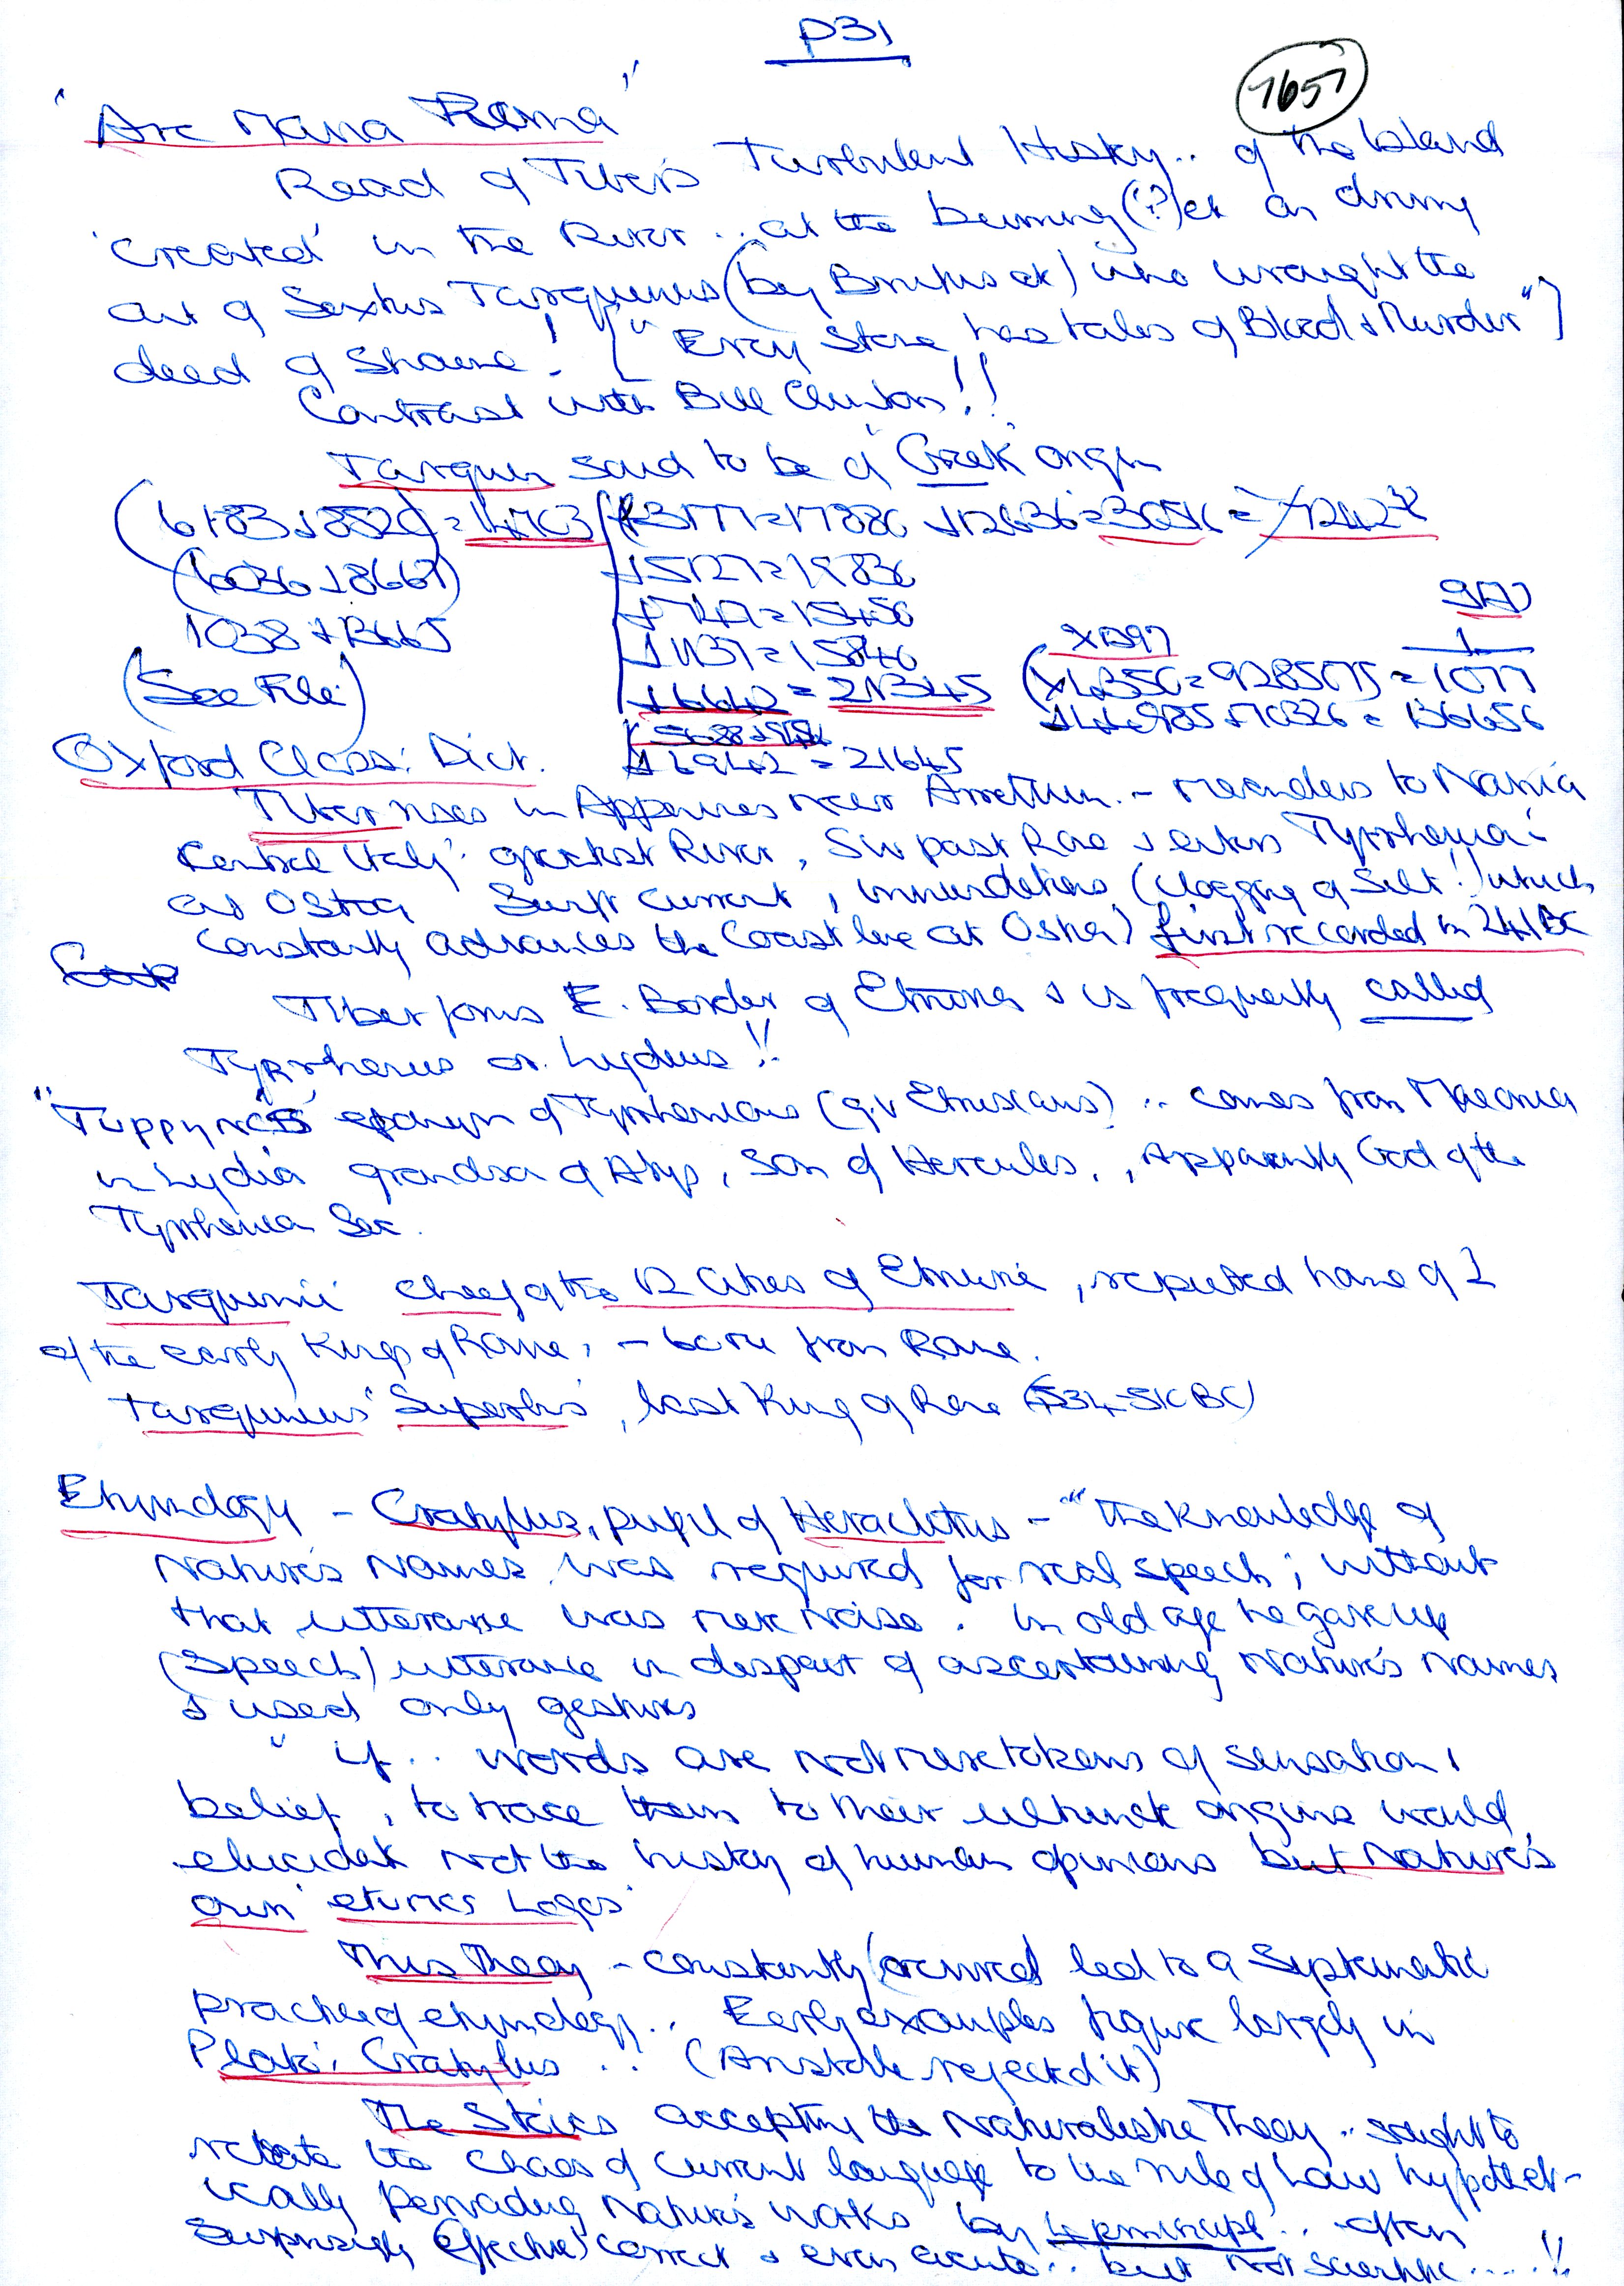 P31
7657
"Ave Maria Roma"
Read of Tiber's Turbulent History.. of the Island
'created' in the River .. at the burning (?) etc an
out of Sextus Tarquinus (by Brutus etc) who wrought the
deed of Shame! ["Every Stone has tales of Blood & Murder"]
Contrast with Bill Clinton!!
Tarquin said to be of Greek origin
(6183+8520) = 14703
(6036+8667)
1038+13665
(See File)
+3177=17880 +12636=30516 =
+5127=19830
+747=15450
+1137=15840
+6642 = 21345
+6942 = 21645
x1397
Oxford Class: Dict.
Tiber rises in Appenines near Arretium - meanders to Narnia
Central Italy's greatest River, SW past Rome & enters Tyrrhenian
at Ostia Swift current, innundations (clogging of Silt!) which
constantly advances the Coast line at Ostia) first recorded in 241BC
Tiber forms E. Border of Etruria & is frequently called
Tyrrhenus or Lydius!!
eponym of Tyrrhenians (q.v Etruscans) .. comes from Maeonia
in Lydia grandson of Atys, Son of Hercules., Apparently God of the
Tyrrhenian Sea.
Tarquinii chief of the 12 Cities of Etruria, reputed home of 2
of the early Kings of Rome, - from Rome.
Tarquinius 'Superbus', last King of Rome (534-510 BC)
Etymology - Cratylus, pupil of Heraclitus - "the knowledge of
Nature's Names was required for real speech; without
that utterance was mere noise. In old age he gave up
(Speech) utterance in despair of ascertaining Nature's Names
& used only gestures
"If .. words are not mere tokens of sensation,
belief, to trace them to their ultimate origins would
elucidate not the history of human opinions but Nature's
own 'etumos Logos'
This Theory - constantly led to a Systematic
practice of etymology.. Early examples figure largely in
Plato's Cratylus .. (Aristotle rejected it)
The Stoics accepting the Naturalistic Theory .. sought to
relate the chaos of current language to the rule of Law hypothet-
ically pervading Nature's works by 4 principles .. often
Surprisingly (effective) correct & even acute .. but not scientific .....!!